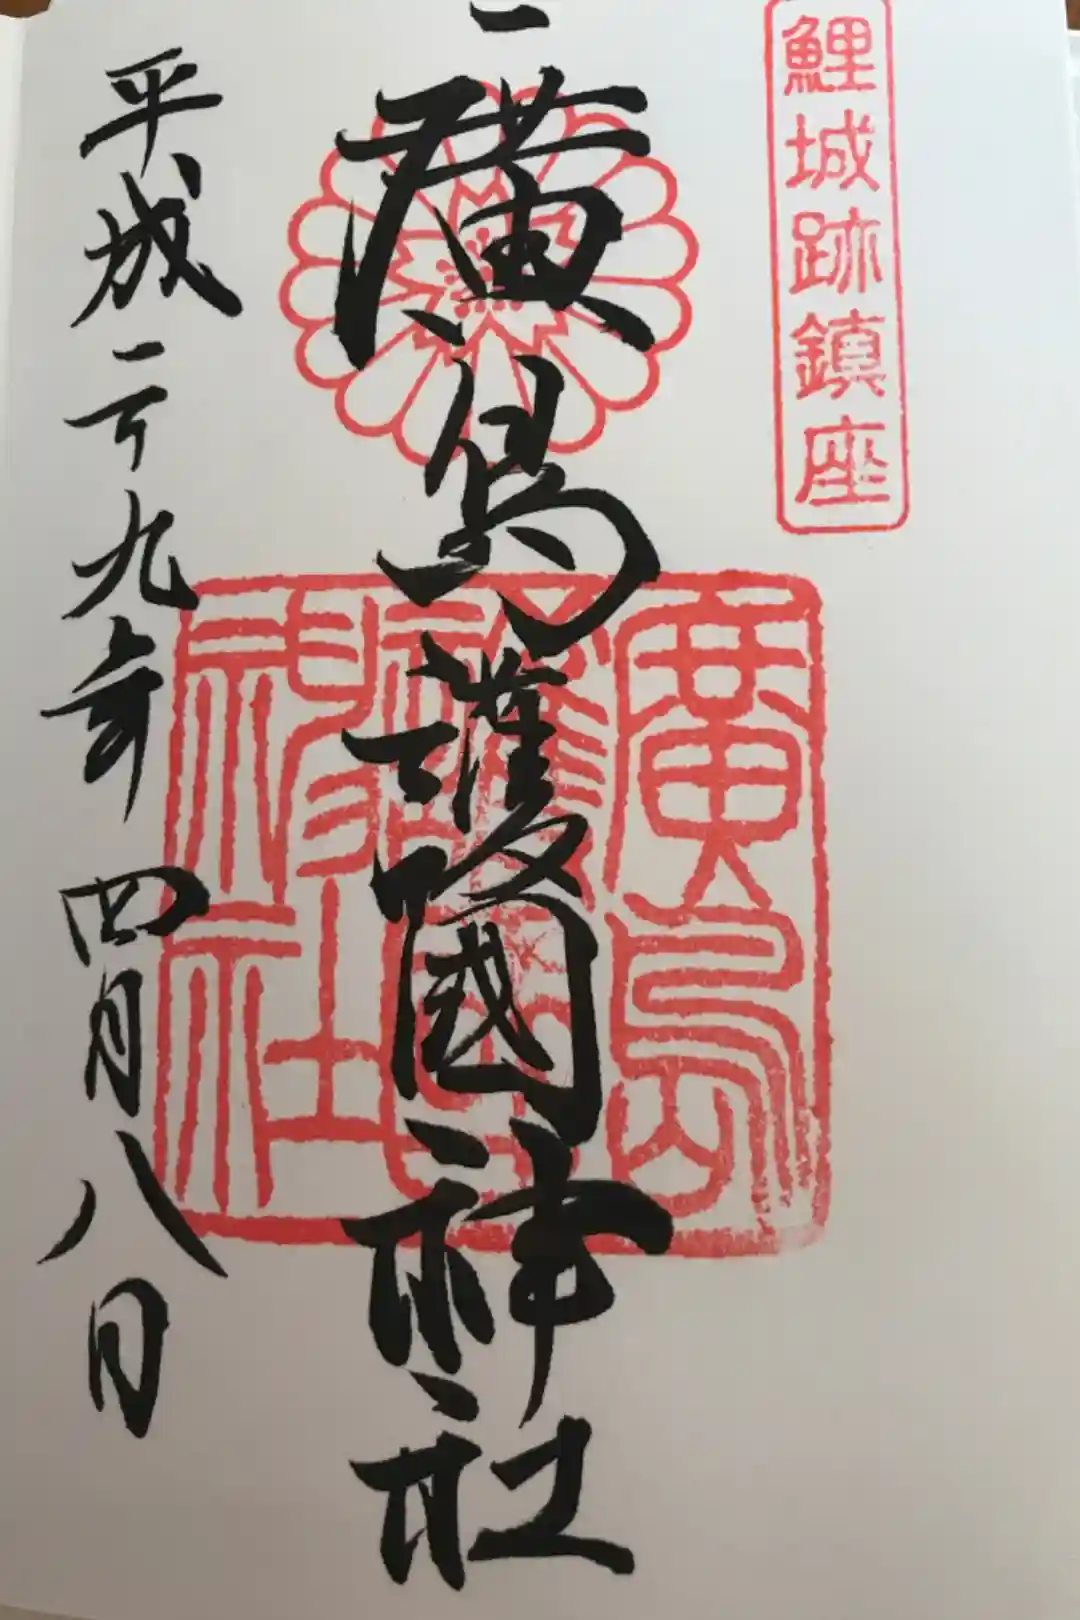 鯉城跡鎮座
廣島護國神社
廣島護國神社
平成二十九年四月八日